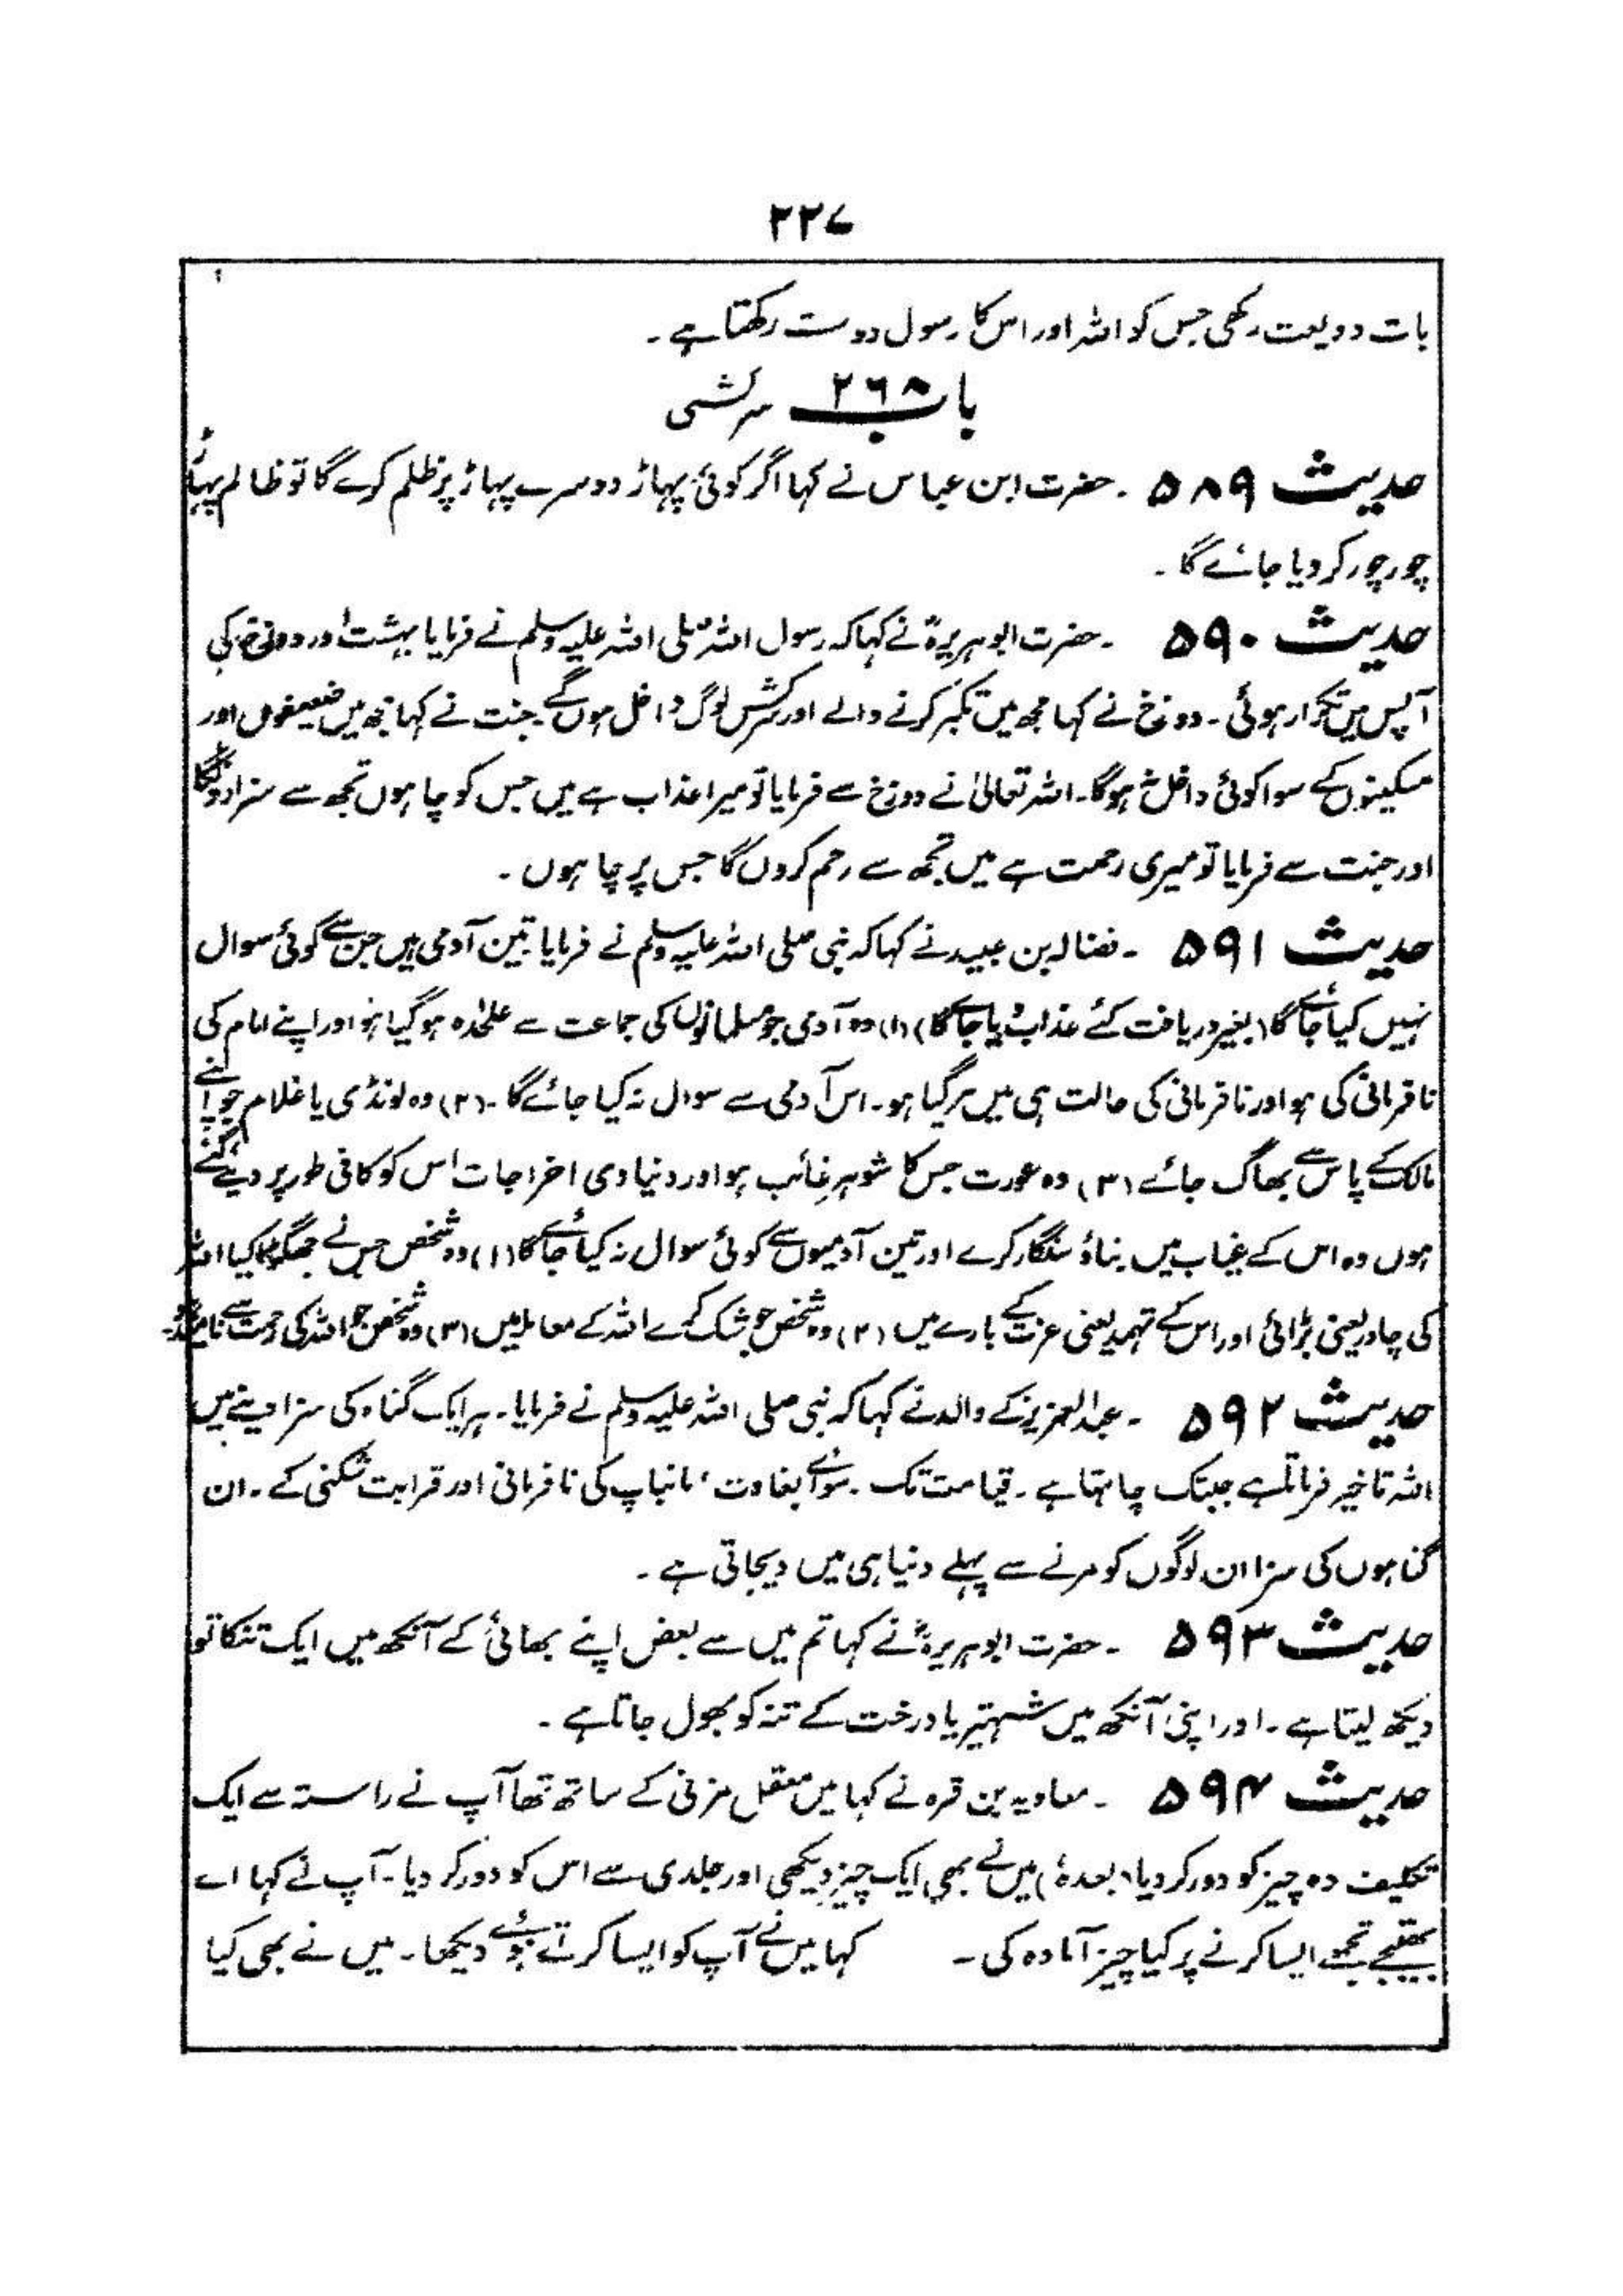 ۲۲۷
بات ودیعت رکھی جس کو اللہ اور اس کا رسول دوست رکھتا ہے ۔
باب ۲۶۸ سرکشی
حدیث ۵۸۹ ۔ حضرت ابن عباس نے کہا اگر کوئی پہاڑ دوسرے پہاڑ پر ظلم کرے گا تو ظالم پہاڑ
چور چور کر دیا جائے گا ۔
حدیث ۵۹۰ ۔ حضرت ابو ہریرہؓ نے کہا کہ رسول اللہ صلی اللہ علیہ وسلم نے فرمایا بہشت اور دوزخ کی
آپس میں تکرار ہوئی ۔ دوزخ نے کہا مجھ میں تکبر کرنے والے اور سرکش لوگ داخل ہوں گے ۔ جنت نے کہا مجھ میں ضعیفوں اور
مسکینوں کے سوا کوئی داخل نہ ہوگا ۔ اللہ تعالیٰ نے دوزخ سے فرمایا تو میرا عذاب ہے میں جس کو چاہوں تجھ سے سزا دوں گا
اور جنت سے فرمایا تو میری رحمت ہے میں تجھ سے رحم کروں گا جس پر چاہوں ۔
حدیث ۵۹۱ ۔ فضالہ بن عبید نے کہا کہ نبی صلی اللہ علیہ وسلم نے فرمایا تین آدمی ہیں جن سے کوئی سوال
نہیں کیا جائے گا (بغیر دریافت کئے عذاب دیا جائے گا) (۱) وہ آدمی جو مسلمانوں کی جماعت سے علیحدہ ہو گیا ہو اور اپنے امام کی
نافرمانی کی ہو اور نافرمانی کی حالت ہی میں مر گیا ہو ۔ اس آدمی سے سوال نہ کیا جائے گا ۔ (۲) وہ لونڈی یا غلام جو اپنے
مالک کے پاس سے بھاگ جائے (۳) وہ عورت جس کا شوہر غائب ہو اور دنیاوی اخراجات اس کو کافی طور پر دیئے گئے
ہوں وہ اس کے غیاب میں بناؤ سنگار کرے اور تین آدمیوں سے کوئی سوال نہ کیا جائے گا (۱) وہ شخص جس نے جھگڑا کیا اللہ
کی چادر یعنی بڑائی اور اس کے تہمد یعنی عزت کے بارے میں (۲) وہ شخص جو شک کرے اللہ کے معاملہ میں (۳) وہ شخص جو اللہ کی رحمت سے ناامید ہو ۔
حدیث ۵۹۲ ۔ عبدالعزیز کے والد نے کہا کہ نبی صلی اللہ علیہ وسلم نے فرمایا ۔ ہر ایک گناہ کی سزا دینے میں
اللہ تاخیر فرماتا ہے جبتک چاہتا ہے ۔ قیامت تک ۔ سوائے بغاوت ، مانباپ کی نافرمانی اور قرابت شکنی کے ۔ ان
گناہوں کی سزا ان لوگوں کو مرنے سے پہلے دنیا ہی میں دیجاتی ہے ۔
حدیث ۵۹۳ ۔ حضرت ابو ہریرہؓ نے کہا تم میں سے بعض اپنے بھائی کے آنکھ میں ایک تنکا تو
دیکھ لیتا ہے ۔ اور اپنی آنکھ میں شہتیر یا درخت کے تنہ کو بھول جاتا ہے ۔
حدیث ۵۹۴ ۔ معاویہ بن قرہ نے کہا میں معقل مزنی کے ساتھ تھا آپ نے راستہ سے ایک
تکلیف دہ چیز کو دور کر دیا (بعدہٗ) میں نے بھی ایک چیز دیکھی اور جلدی سے اس کو دور کر دیا ۔ آپ نے کہا اے
بھتیجے تجھے ایسا کرنے پر کیا چیز آمادہ کی ۔ کہا میں نے آپ کو ایسا کرتے ہوئے دیکھا ۔ میں نے بھی کیا